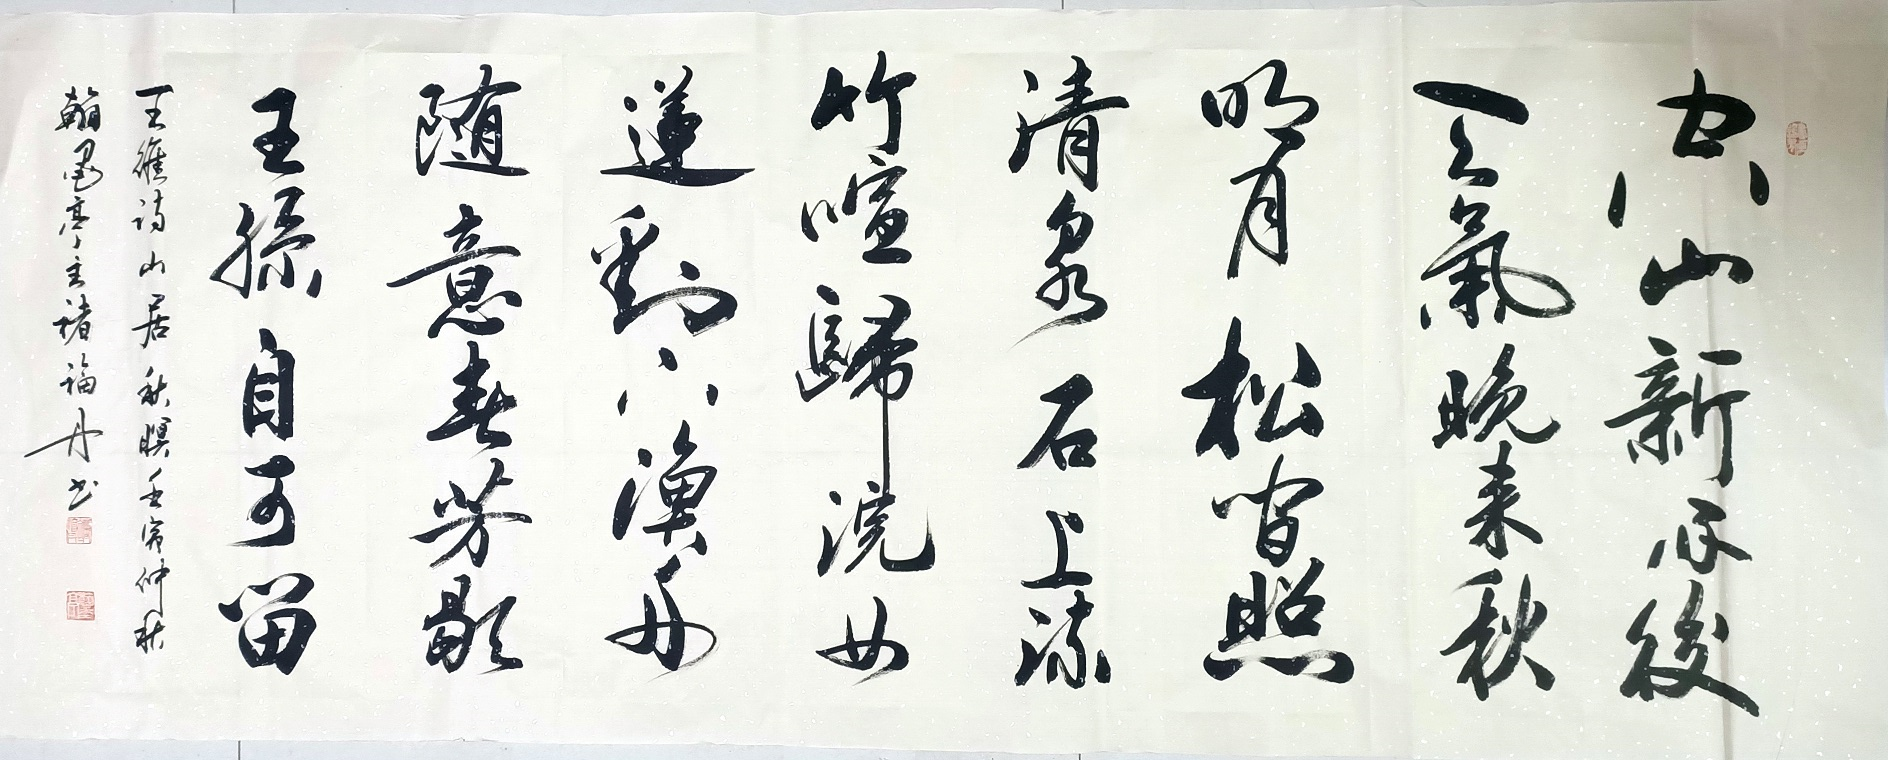 空山新雨後
天氣晚来秋
明月松間照
清泉石上流
竹喧歸浣女
蓮動下漁舟
随意春芳歇
王孫自可留
王維诗山居秋暝壬寅仲秋
翰墨亭主褚福丹书